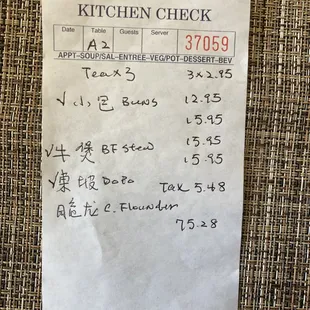 KITCHEN CHECK
Date Table Guests Server
A2 37059
APPT-SOUP/SAL-ENTREE-VEG/POT-DESSERT-BEV
Tea x 3 3 x 2.95
√小包 Buns 12.95
15.95
√牛煲 BF Stew 15.95
15.95
√東坡 DoPo Tax 5.48
龙 C. Flounder
75.28